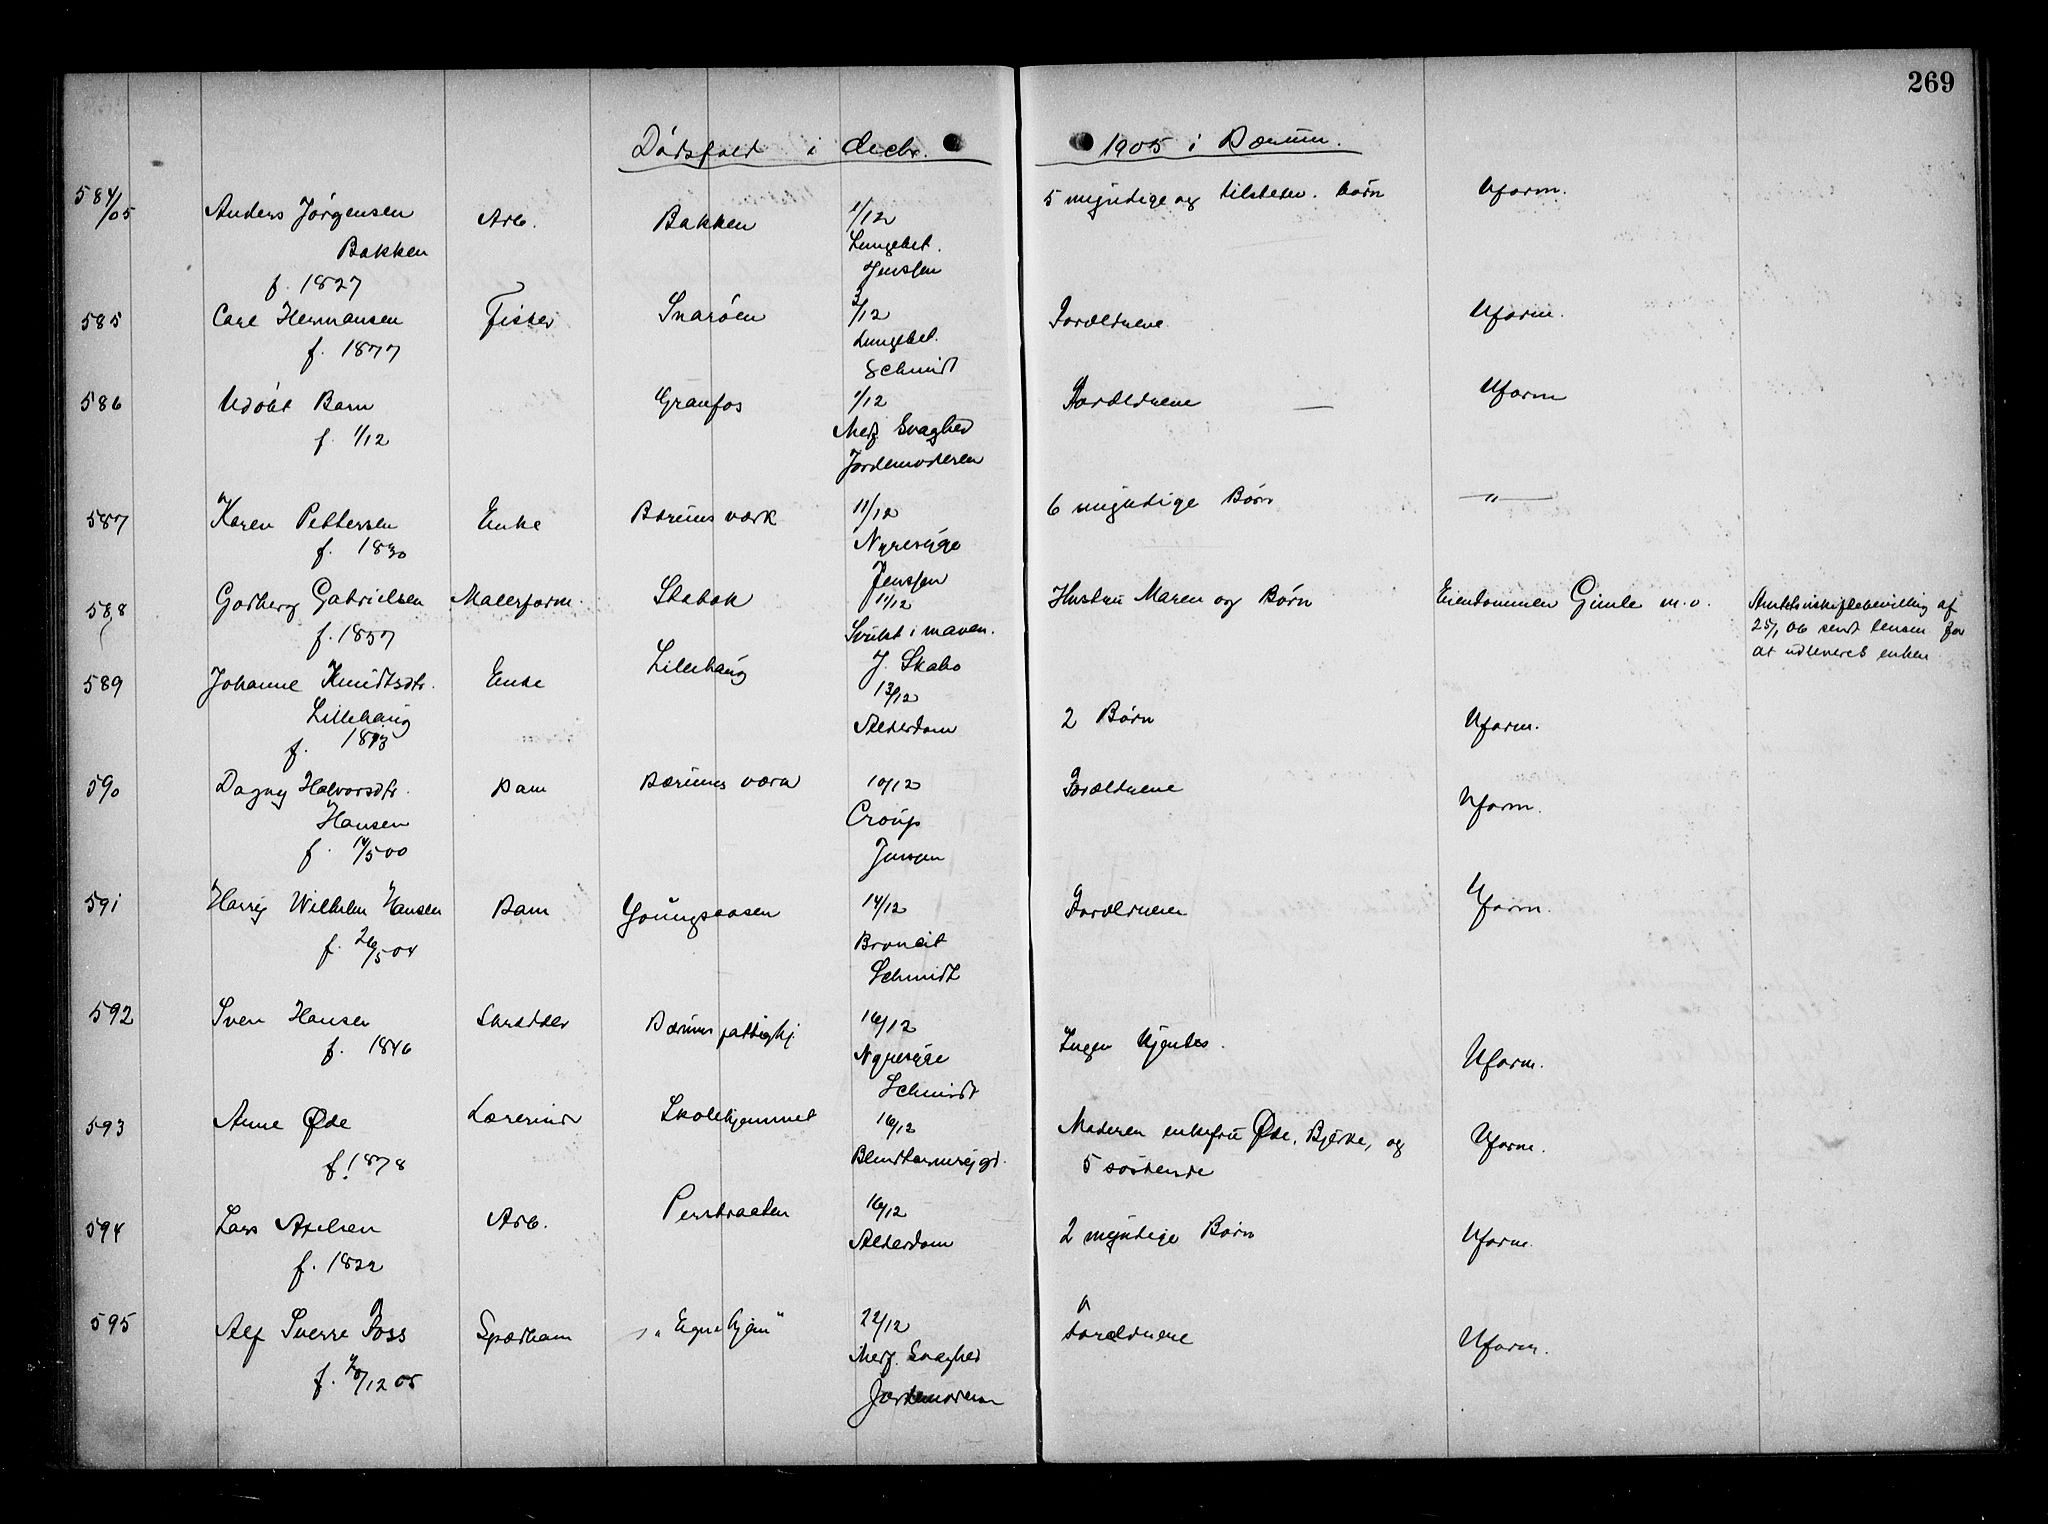 269
Dødsfald i decbr. 1905 i Bærum.
584/05 Anders Jørgensen Arb. Bakken 1/12 5 myndige og tilstede. børn Uform.
Bakken Lungebet.
f. 1827 Jenssen
585 Carl Hermansen Fisker Snarøen 3/12 Forældrene Uform.
f. 1877 Lungebet.
Schmidt
586 Udøbt Barn Granfos 1/12 Forældrene — Uform
f. 1/12 Medf. Svaghed
Jordemoderen
587 Karen Pettersen Enke Bærums værk 11/12 6 myndige Børn — " —
f. 1830 Nyresyge
Jenssen
588 Godberg Gabrielsen Malerform. Stabæk 11/12 Hustru Maren og Børn Eiendommen Gimle m.v.
f. 1857 Svulst i maven. 25/1 06 sendt lensm. for
J. Skabo at udleveres enken
589 Johanne Knudtsdtr. Enke Lillehaug 13/12 2 Børn Uform.
Lillehaug Alderdom
f. 1813
590 Dagny Halvorsdtr. Barn Bærums værk 10/12 Forældrene Uform.
Hansen Croup
f. 14/5 00 Jenssen
591 Harry Wilhelm Hansen Barn Youngsaasen 14/12 Forældrene Uform.
f. 26/5 04 Bronkit
Schmidt
592 Sven Hansen Skrædder Bærums fattighj. 16/12 Ingen kjendes. Uform.
f. 1846 Nyresyge
Schmidt
593 Anne Øde Lærerinde Skolehjemmet 16/12 Moderen enkefru Øde, Bjerke, og Uform.
f. 1878 Blindtarmsygd. 5 søskende
594 Lars Axelsen Arb. Presteraaten 16/12 2 myndige Børn Uform.
f. 1822 Alderdom
595 Alf Sverre Foss Spædbarn „Egne hjem" 22/12 Forældrene Uform.
f. 20/12 05 Medf. Svaghed
Jordemoderen